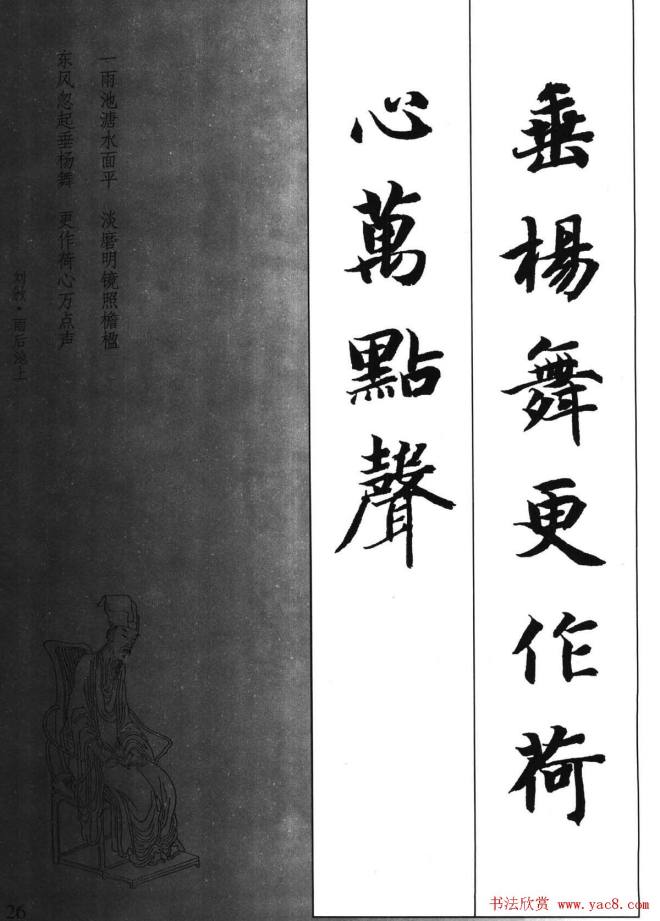 垂楊舞更作荷
心萬點聲
一雨池塘水面平 淡磨明镜照檐楹
东风忽起垂杨舞 更作荷心万点声
刘攽·雨后池上
26
书法欣赏 www.yac8.com